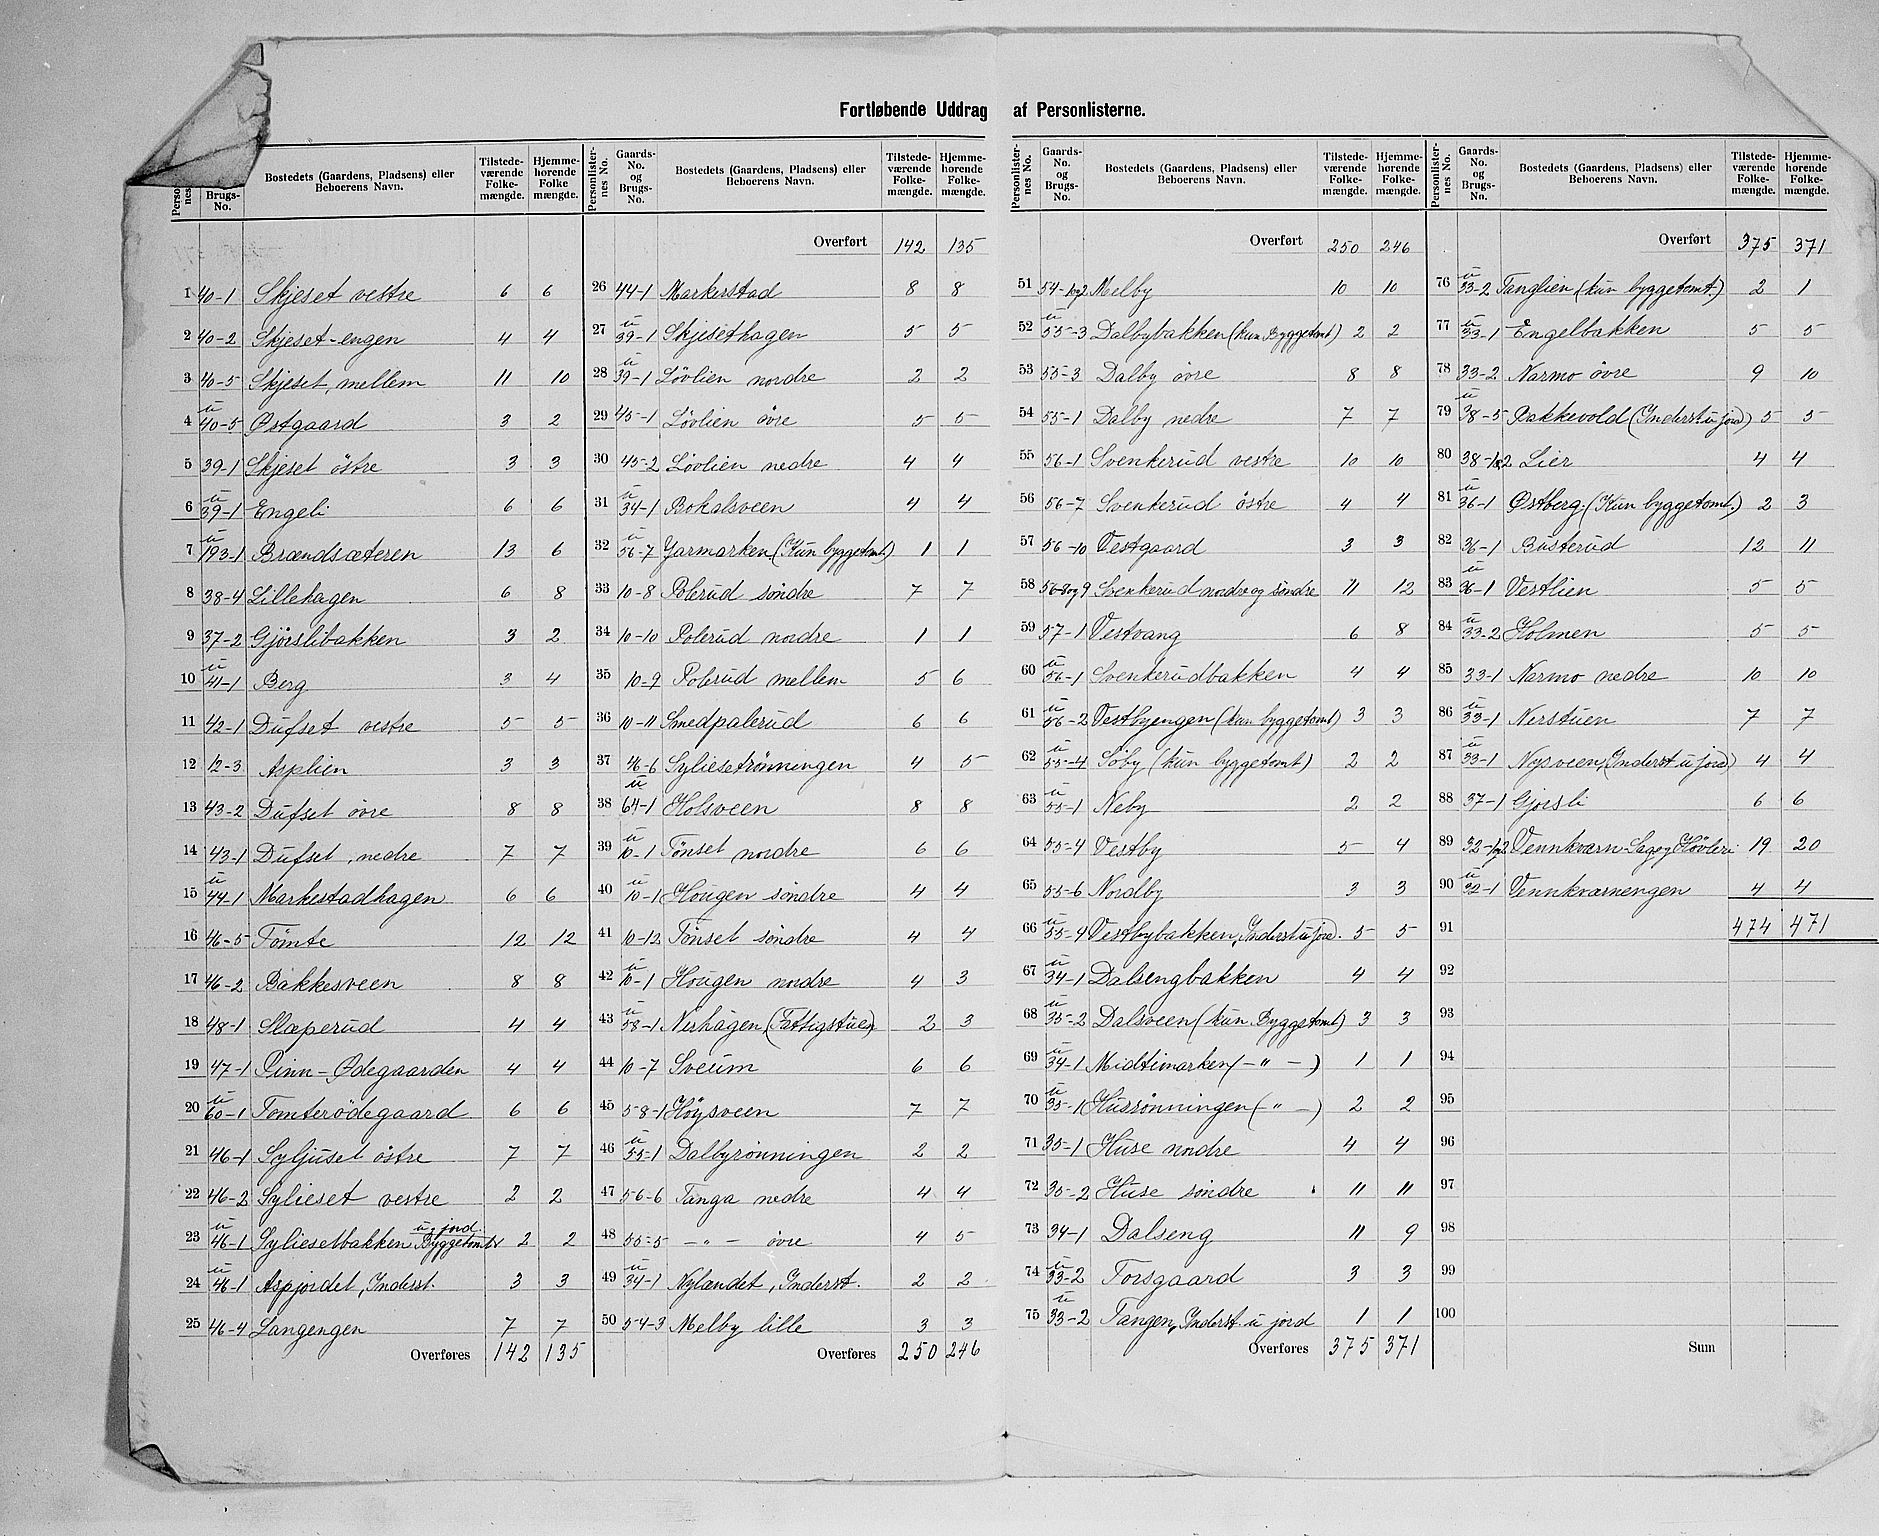 Fortløbende Uddrag af Personlisterne.
Bostedets (Gaardens, Pladsens) eller Beboerens Navn. Tilstedeværende Folkemængde. Hjemmehørende Folkemængde.
Brugs-No.
1 40-1 Skjeset vestre 6 6
2 40-2 Skjeset-engen 4 4
3 40-5 Skjeset, mellem 11 10
4 u 40-5 Østgaard 3 2
5 39-1 Skjeset östre 3 3
6 u 39-1 Engeli 6 6
7 u 193-1 Brændsæteren 13 6
8 38-4 Lillehagen 6 8
9 37-2 Gjörslibakken 3 2
10 u 41-1 Berg 3 4
11 42-1 Dufset vestre 5 5
12 12-3 Asplien 3 3
13 43-2 Dufset øvre 8 8
14 43-1 Dufset, nedre 7 7
15 u 44-1 Markestadhagen 6 6
16 46-5 Tömte 12 12
17 46-2 Bakkesveen 8 8
18 48-1 Slæperud 4 4
19 47-1 Pinn-Ødegaarden 4 4
20 u 60-1 Tomterödegaard 6 6
21 46-1 Syljuset östre 7 7
22 46-2 Sylieset vestre 2 2
23 u 46-1 Syliesetbakken u. jord. Byggetomt 2 2
24 u 46-1 Aspjordet, Inderst. 3 3
25 46-4 Langengen 7 7
Overføres 142 135
Personlisternes No. Gaards-No. og Brugs-No. Bostedets (Gaardens, Pladsens) eller Beboerens Navn. Tilstedeværende Folkemængde. Hjemmehørende Folkemængde.
Overført 142 135
26 44-1 Markerstad 8 8
27 u 39-1 Skjesethagen 5 5
28 u 39-1 Lövlien nordre 2 2
29 45-1 Lövlien övre 5 5
30 45-2 Lövlien nedre 4 4
31 u 34-1 Bokalsveen 4 4
32 u 56-7 Yarmarken (Kun byggetomt.) 1 1
33 10-8 Polerud söndre 7 7
34 10-10 Polerud nordre 1 1
35 10-9 Polerud mellem 5 6
36 10-11 Smedpalerud 6 6
37 46-6 Syliesetrönningen 4 5
38 u 64-1 Holsveen 8 8
39 u 10-1 Tönset nordre 6 6
40 u 10-1 Hougen söndre 4 4
41 10-12 Tönset söndre 4 4
42 u 10-1 Hougen nordre 4 3
43 u 58-1 Nerhagen (Fattigstuen) 2 3
44 10-7 Sveum 6 6
45 58-1 Höysveen 7 7
46 u 55-1 Dalbyrönningen 2 2
47 56-6 Tanga nedre 4 4
48 55-5 -"- övre 4 5
49 u 34-1 Nylændet, Inderst. 2 2
50 54-3 Melby lille 3 3
Overføres 250 246
Personlisternes No. Gaards-No. og Brugs-No. Bostedets (Gaardens, Pladsens) eller Beboerens Navn. Tilstedeværende Folkemængde. Hjemmehørende Folkemængde.
Overført 250 246
51 54-1og2 Melby 10 10
52 u 55-3 Dalbybakken (kun Byggetomt) 2 2
53 55-3 Dalby øvre 8 8
54 55-1 Dalby nedre 7 7
55 56-1 Svenkerud vestre 10 10
56 56-7 Svenkerud östre 4 4
57 56-10 Vestgaard 3 3
58 56-8og9 Svenkerud nordre og söndre 11 12
59 57-1 Vestvang 6 8
60 u 56-1 Svenkerudbakken 4 4
61 u 56-2 Vestbyengen (kun byggetomt) 3 3
62 u 55-4 Söby (kun byggetomt) 2 2
63 u 55-1 Neby 2 2
64 55-4 Vestby 5 4
65 55-6 Nordby 3 3
66 u 55-4 Vestbybakken, Inderst u jord. 5 5
67 u 34-1 Dalsengbakken 4 4
68 u 35-2 Dalsveen (kun Byggetomt) 3 3
69 u 34-1 Midtimarken (-"-) 1 1
70 u 35-1 Husrönningen (-"-) 2 2
71 35-1 Huse nordre 4 4
72 35-2 Huse söndre 11 11
73 34-1 Dalseng 11 9
74 u 33-2 Forsgaard 3 3
75 u 33-2 Tangen, Inderst. u jord 1 1
Overføres 375 371
Personlisternes No. Gaards-No. og Brugs-No. Bostedets (Gaardens, Pladsens) eller Beboerens Navn. Tilstedeværende Folkemængde. Hjemmehørende Folkemængde.
Overført 375 371
76 u 33-2 Tanglien (kun byggetomt.) 2 1
77 u 33-1 Engelbakken 5 5
78 33-2 Narmo övre 9 10
79 u 38-5 Bakkevold (Inderst. u jord) 5 5
80 38-1&2 Lier 4 4
81 u 36-1 Østberg. (Kun byggetomt.) 2 3
82 36-1 Busterud 12 11
83 u 36-1 Vestlien 5 5
84 u 33-2 Holmen 5 5
85 33-1 Narmo nedre 10 10
86 u 33-1 Nerstuen 7 7
87 u 33-1 Nysveen, (Inderst u jord) 4 4
88 37-1 Gjörsli 6 6
89 32-1og2 Vennkværn-Sag og Høvleri 19 20
90 u 32-1 Vennkværnengen 4 4
91 474 471
92
93
94
95
96
97
98
99
100
Sum